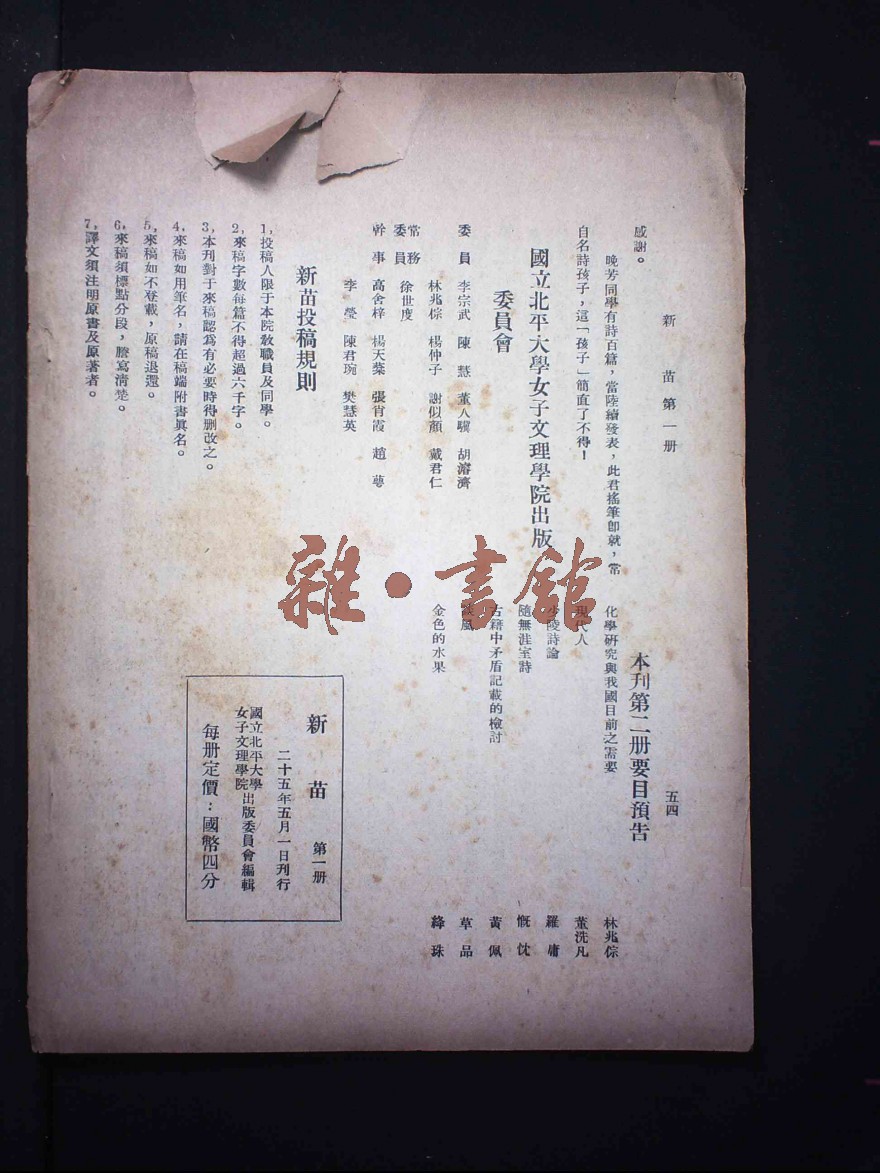 新苗第一册
五四
感謝。
晚芳同學有詩百篇，當陸續發表，此君搖筆卽就，常
自名詩孩子，這「孩子」簡直了不得！
國立北平大學女子文理學院出版
委員會
委員 李宗武 陳慧 董人驥 胡濬濟
林兆倧 楊仲子 謝似顏 戴君仁
常務委員 徐世度
幹事 高舍梓 楊天蘂 張肖霞 趙蕚
李瑩 陳君琬 樊慧英
新苗投稿規則
1，投稿人限于本院教職員及同學。
2，來稿字數每篇不得超過六千字。
3，本刊對于來稿認爲有必要時得刪改之。
4，來稿如用筆名，請在稿端附書眞名。
5，來稿如不登載，原稿退還。
6，來稿須標點分段，謄寫清楚。
7，譯文須注明原書及原著者。
本刊第二册要目預告
化學研究與我國目前之需要 林兆倧
現代人 董洗凡
少陵詩論 羅庸
隨無涯室詩 慨忱
古籍中矛盾記載的檢討 黃佩
風 草品
金色的水果 絳珠
新苗 第一册
二十五年五月一日刊行
國立北平大學女子文理學院出版委員會編輯
每册定價：國幣四分
雜·書館